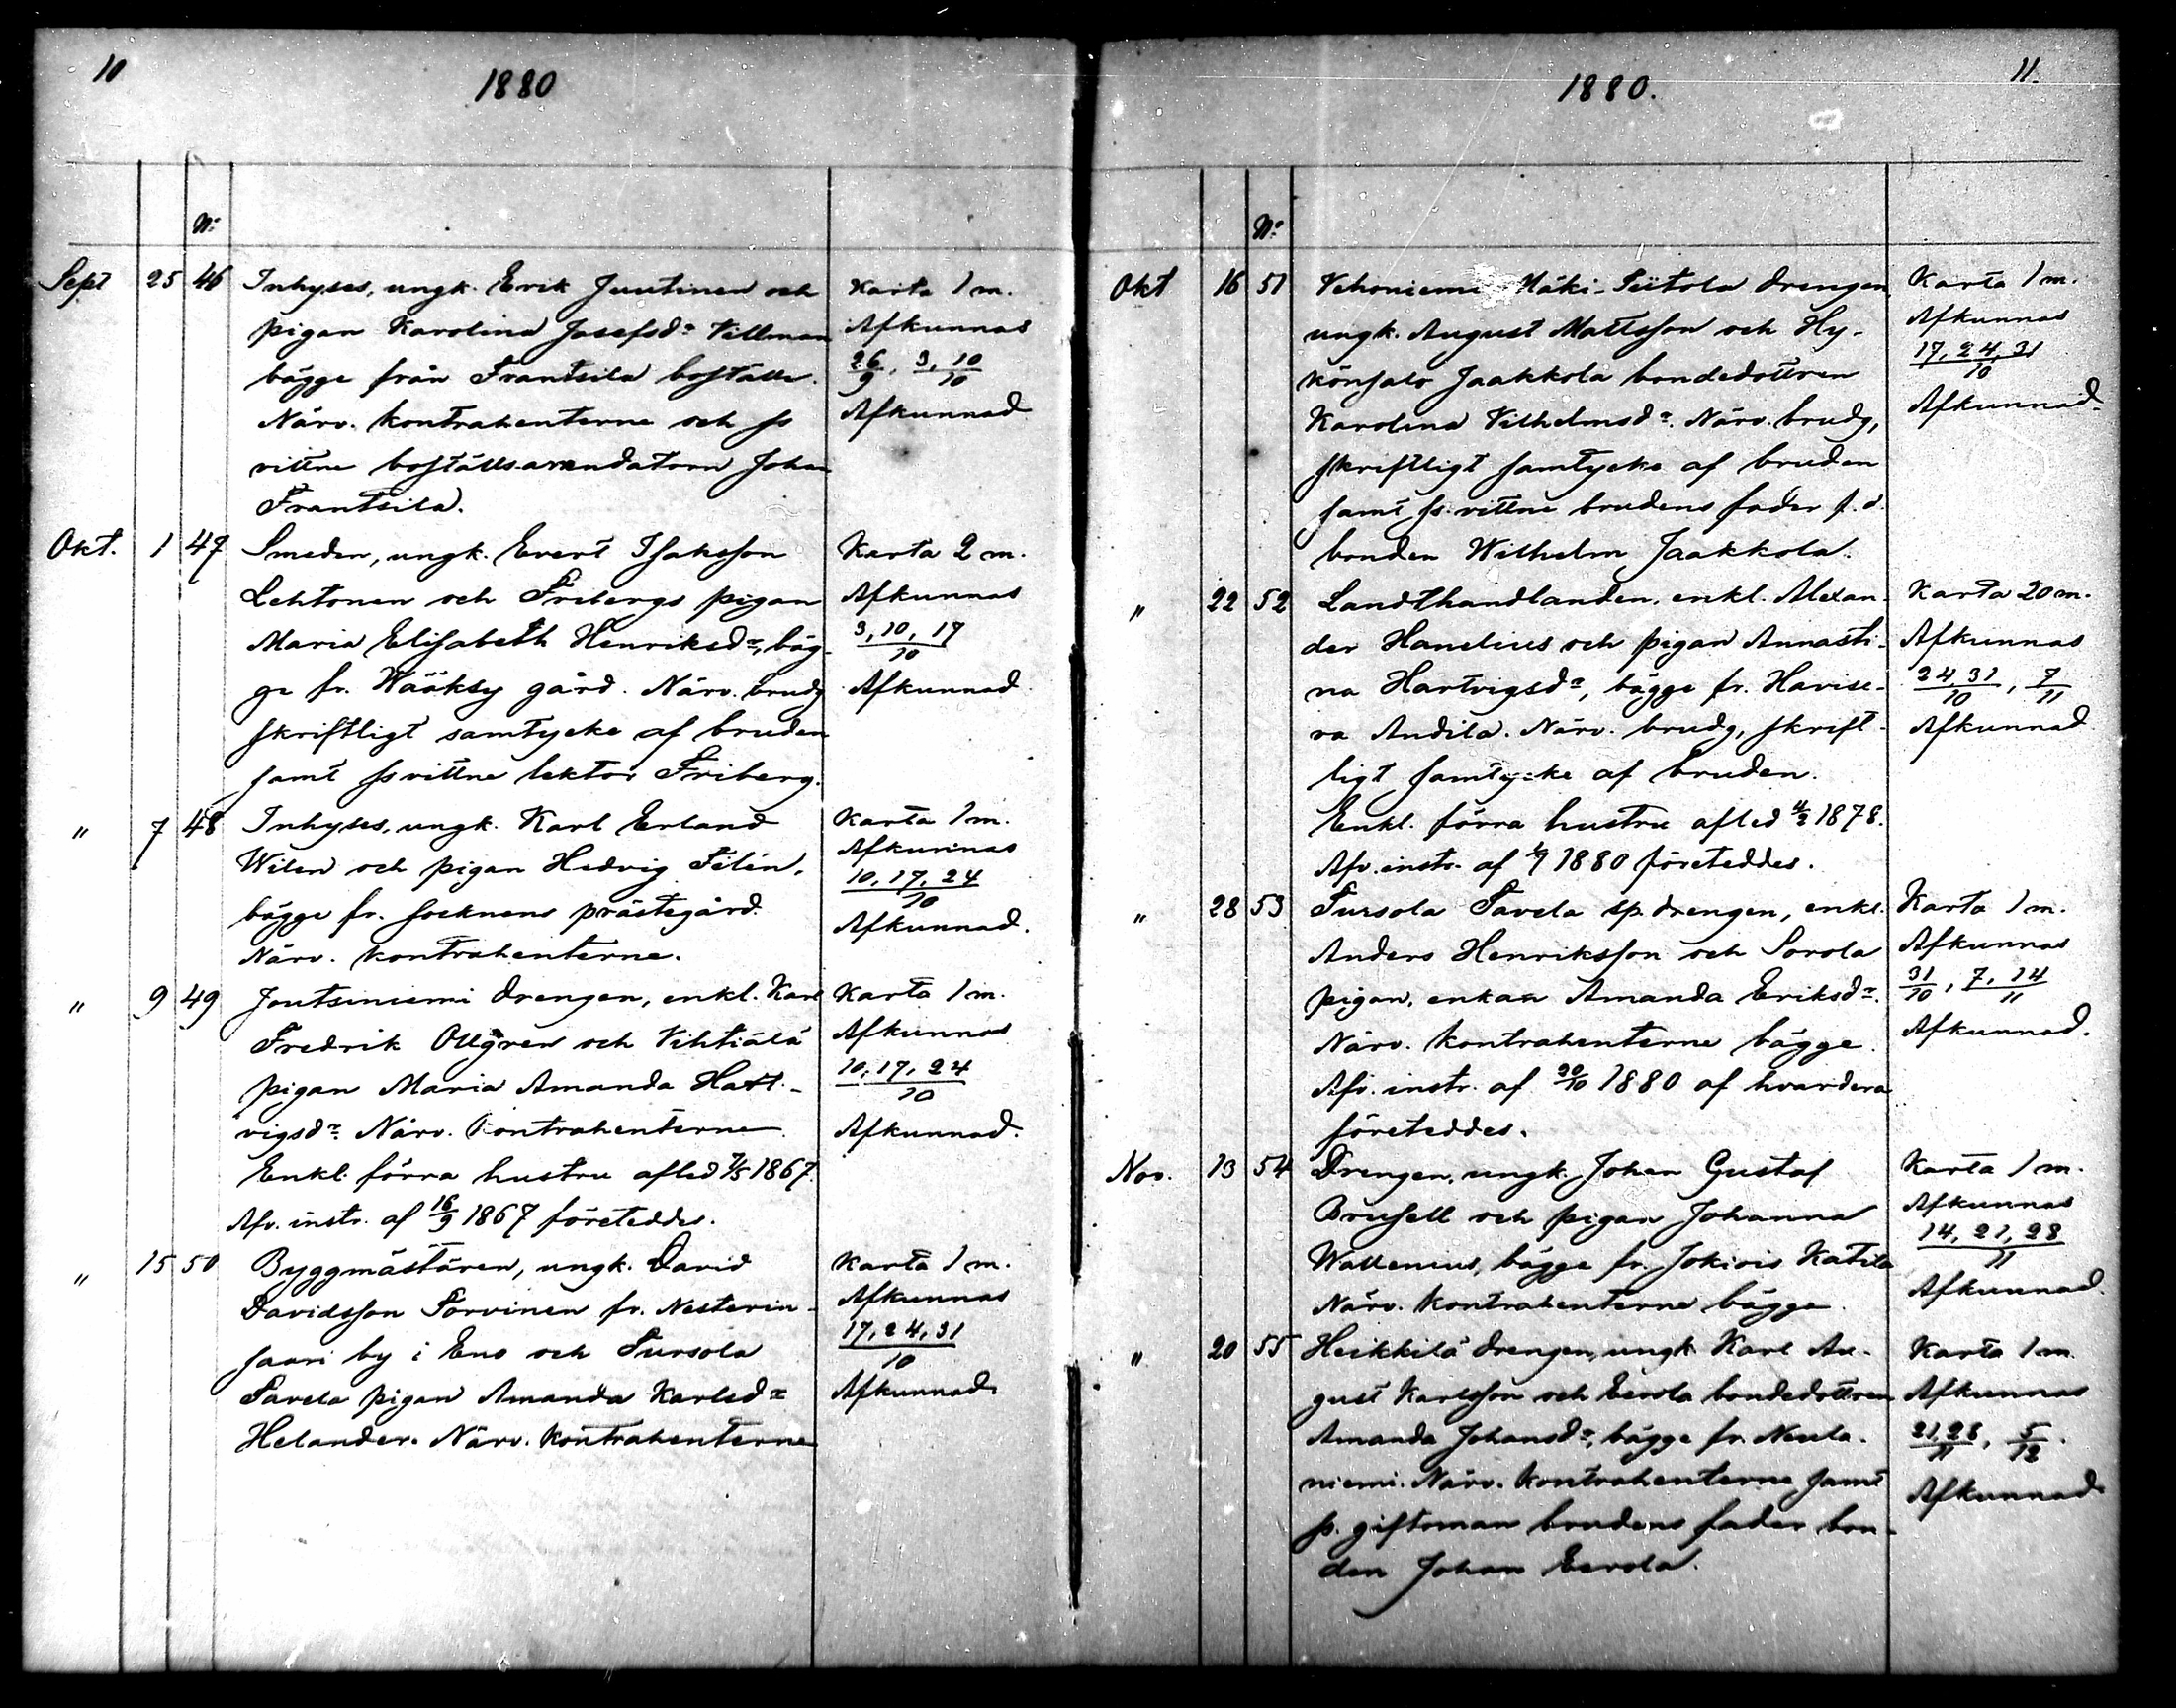 10
1880
No
Sept 25 46 Inhyses, ungk. Erik Juutinen och
pigan Karolina Josefsdr Villman
bägge från Frantsila boställe.
Närv. kontrahenterne och ss
vittne boställsarrendatorn Johan
Frantsila.
Karta 1 m.
Afkunnas
26/9, 3, 10/10
Afkunnad
Okt. 1 47 Smeden, ungk. Evert Isaksson
Lehtonen och Fribergs pigan
Maria Elisabeth Henriksdr, bäg-
ge fr. Wääksy gård. Närv. brudg
skriftligt samtycke af bruden
samt ss vittne lektor Friberg.
Karta 2 m.
Afkunnas
3, 10, 17/10
Afkunnad
" 7 48 Inhyses, ungk. Karl Erland
Wilen och pigan Hedvig Filén,
bägge fr. socknens prästegård.
Närv. kontrahenterne.
Karta 1 m.
Afkunnas
10, 17, 24/10
Afkunnad.
" 9 49 Joutsiniemi drengen, enkl. Karl
Fredrik Ollgren och Vihtiälä
pigan Maria Amanda Hart-
vigsdr. Närv. Kontrahenterne.
Enkl. förra hustru afled 7/5 1867.
Afv. instr. af 16/9 1867 företeddes.
Karta 1 m.
Afkunnas
10, 17, 24/10
Afkunnad.
" 15 50 Byggmästaren, ungk. David
Davidsson Sorvinen fr. Nesterin-
saari by i Eno och Tursola
Tavela pigan Amanda Karlsdr
Helander. Närv. kontrahenterne
Karta 1 m.
Afkunnas
17, 24, 31/10
Afkunnad
11.
1880.
No
Okt 16 51 Vehoniemi Mäki-Piitola drengen
ungk. August Mattsson och Hy-
könsalo Jaakkola bondedottren
Karolina Vilhelmsdr. Närv. brudg,
skriftligt samtycke af bruden
samt ss. vittne brudens fader f. d.
bonden Wilhelm Jaakkola.
Karta 1 m.
Afkunnas
17, 24, 31/10
Afkunnad.
" 22 52 Landthandlanden, enkl. Alexan-
der Hanelius och pigan Annasti-
na Hartvigsdr, bägge fr. Havise-
va Andila. Närv. brudg, skrift-
ligt samtycke af bruden.
Enkl. förra hustru afled 4/2 1878.
Afv. instr. af 1/9 1880 företeddes.
Karta 20 m.
Afkunnas
24, 31/10, 7/11
Afkunnad
" 28 53 Tursola Tavela sp. drengen, enkl.
Anders Henriksson och Sorola
pigan, enkan Amanda Eriksdr.
Närv. kontrahenterne bägge.
Afv. instr. af 20/10 1880 af hvardera
företeddes.
Karta 1 m.
Afkunnas
31/10, 7, 14/11
Afkunnad.
Nov. 13 54 Drengen, ungk. Johan Gustaf
Brusell och pigan Johanna
Wallenius, bägge fr. Jokivis Katila
Närv. kontrahenterne bägge.
Karta 1 m.
Afkunnas
14, 21, 28/11
Afkunnad.
" 20 55 Heikkilä drengen, ungk Karl Au-
gust Karlsson och Eerola bondedottren
Amanda Johansdr, bägge fr. Neula-
niemi. Närv. kontrahenterne samt
ss. giftoman brudens fader bon-
den Johan Eerola.
Karta 1 m.
Afkunnas
21, 28/11, 5/12.
Afkunnad